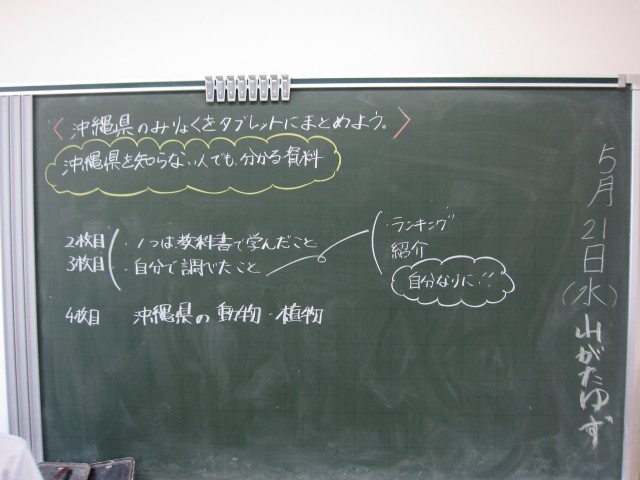 〈沖縄県のみりょくをタブレットにまとめよう。〉
沖縄県を知らない人でも、分かる資料
2枚目 ・1つは教科書で学んだこと
3枚目 ・自分で調べたこと
・ランキング
紹介
自分なりに!!
4枚目 沖縄県の動物・植物
5月21日(水)山がたゆず